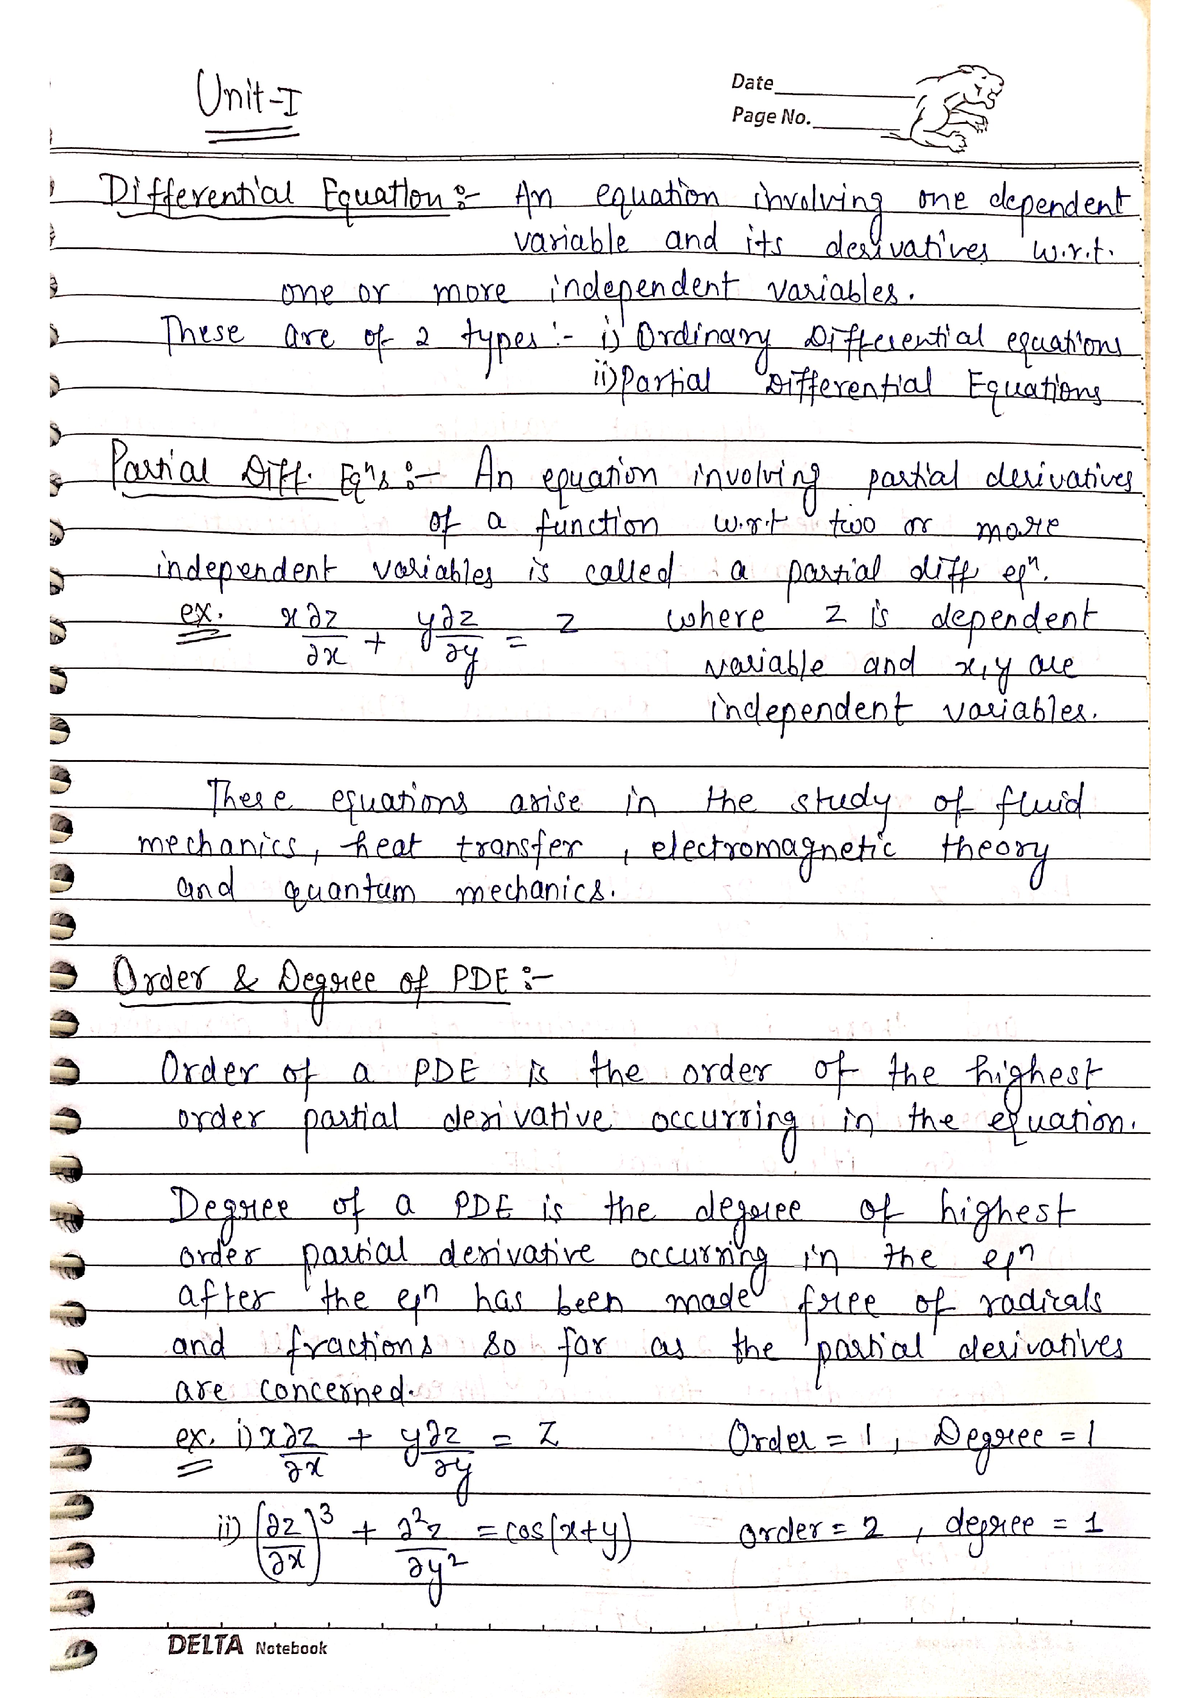 Unit-I
Date
Page No.
Differential Equation :- An equation involving one dependent
variable and its derivatives w.r.t.
one or more independent variables.
These are of 2 types :- i) Ordinary Differential equations
ii) Partial Differential Equations
Partial Diff. Eqⁿs :- An equation involving partial derivatives
of a function w.r.t two or more
independent variables is called a partial diff eqⁿ.
ex. x∂z/∂x + y∂z/∂y = z where z is dependent
variable and x, y are
independent variables.
These equations arise in the study of fluid
mechanics, heat transfer, electromagnetic theory
and quantum mechanics.
Order & Degree of PDE :-
Order of a PDE is the order of the highest
order partial derivative occurring in the equation.
Degree of a PDE is the degree of highest
order partial derivative occurring in the eqⁿ
after the eqⁿ has been made free of radicals
and fractions so far as the partial derivatives
are concerned.
ex. i) x∂z/∂x + y∂z/∂y = z Order = 1, Degree = 1
ii) (∂z/∂x)³ + ∂²z/∂y² = cos(x+y) order = 2, degree = 1
DELTA Notebook